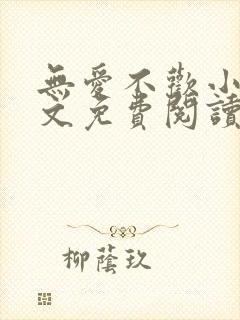 無愛不歡小
文免費閱讀
柳蔭玖